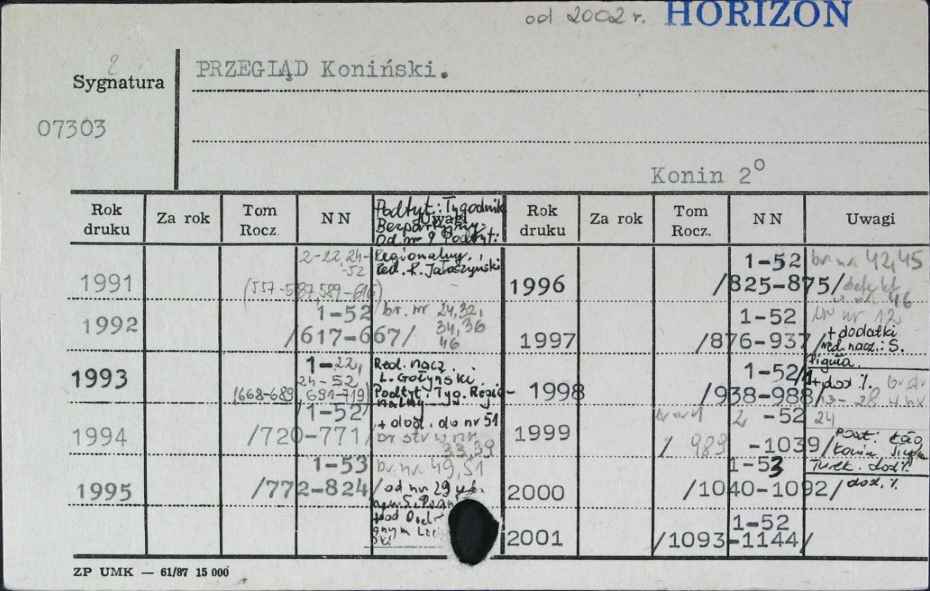 od 2002 r. HORIZON
2
Sygnatura
PRZEGLĄD Koniński.
07303
Konin 2°
Rok druku
Za rok
Tom Rocz.
NN
Uwagi
Rok druku
Za rok
Tom Rocz.
NN
Uwagi
Podtyt: Tygodnik
Bezpartyjny.
Od nr 9 Podtyt:
Regionalny.,
1991
2-22, 24-
-52
(557-587,589-616)
1992
1-52
/617-667/
br. nr 24,32,
34,36
46
1993
1-22,
24-52
(668-689, 691-719)
Red. nacz.
L. Gołyński.
Podtyt: Tyg. Regio-
nalny
1994
1-52
/720-771/
+ dod. do nr 51
33,39
1995
1-53
/772-824/
br. nr 49,51
/ od nr 29
1996
1-52
/825-875/
br. nr 42,45
defekt
46
1997
1-52
/876-937/
br nr 12,
+ dodatki
red. nacz.: S.
1998
1-52/
/938-988/
+ dod %.
1999
2 -52
/ 989 -1039/
24
2000
1-53
/1040-1092/
Turek. dod %
dod. %
2001
1-52
/1093-1144/
ZP UMK — 61/87 15 000